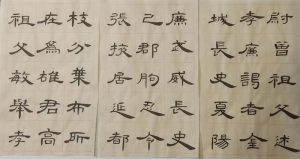 枝分葉布所
在為雄君高
祖父敏舉孝
廉武威長史
巴郡朐忍令
張掖居延都
尉曾祖父述
孝廉謁者金
城長史夏陽